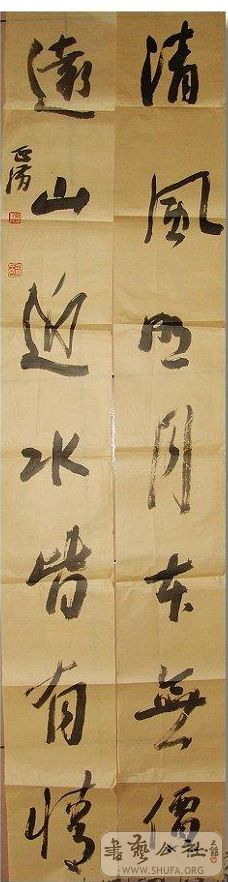 清風明月本無價
遠山近水皆有情
書藝公社
WWW.SHUFA.ORG